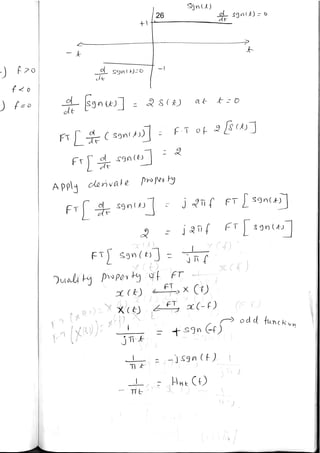 sgn(t)
26
d/dt sgn(t) = 0
+1
-t
t
d/dt sgn(t)=0
-1
) f>0
f<0
) f=0
d/dt [sgn(t)] = 2 δ(t) at t=0
FT [d/dt (sgn(t))] = F.T of 2[δ(t)]
FT [d/dt sgn(t)] = 2
Apply derivate property
FT [d/dt sgn(t)] = j2πf FT [sgn(t)]
2 = j2πf FT [sgn(t)]
FT[sgn(t)] = 1/jπf
Duality property of FT
x(t) <-FT-> X(f)
X(t) <-FT-> x(-f)
1/jπt = + sgn(-f) → odd function
1/πt = -j sgn(f)
1/πt = Hht(f)